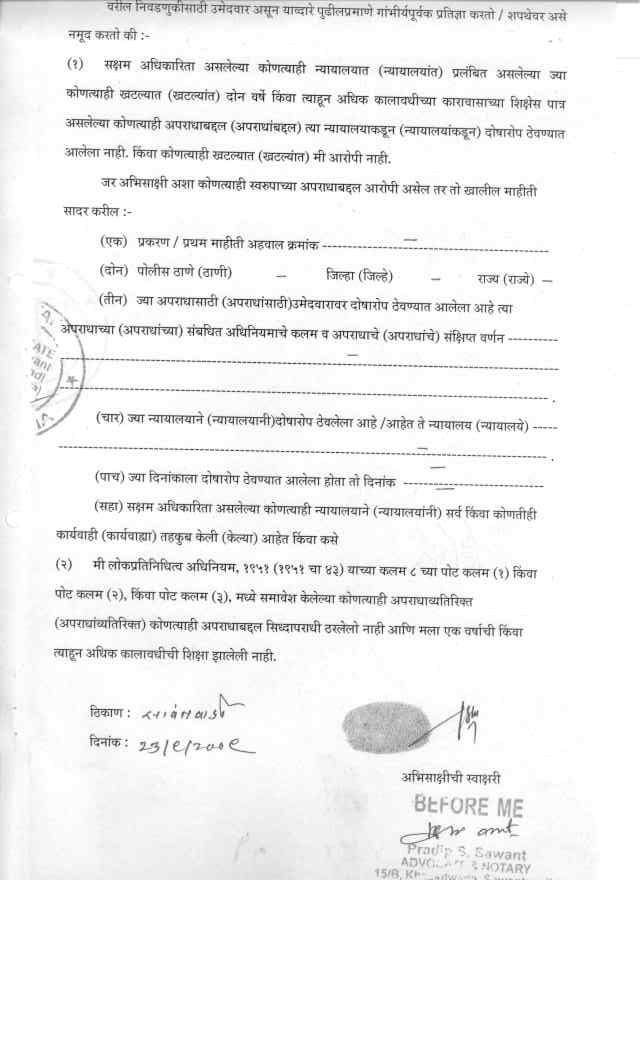 वरील निवडणुकीसाठी उमेदवार असून याव्दारे पुढीलप्रमाणे गांभीर्यपूर्वक प्रतिज्ञा करतो / शपथेवर असे
नमूद करतो की :-
(१) सक्षम अधिकारिता असलेल्या कोणत्याही न्यायालयात (न्यायालयांत) प्रलंबित असलेल्या ज्या
कोणत्याही खटल्यात (खटल्यांत) दोन वर्षे किंवा त्याहून अधिक कालावधीच्या कारावासाच्या शिक्षेस पात्र
असलेल्या कोणत्याही अपराधाबद्दल (अपराधांबद्दल) त्या न्यायालयाकडून (न्यायालयांकडून) दोषारोप ठेवण्यात
आलेला नाही. किंवा कोणत्याही खटल्यात (खटल्यांत) मी आरोपी नाही.
जर अभिसाक्षी अशा कोणत्याही स्वरुपाच्या अपराधाबद्दल आरोपी असेल तर तो खालील माहीती
सादर करील :-
(एक) प्रकरण / प्रथम माहीती अहवाल क्रमांक ---------------------------------------------
(दोन) पोलीस ठाणे (ठाणी) – जिल्हा (जिल्हे) – राज्य (राज्ये) –
(तीन) ज्या अपराधासाठी (अपराधांसाठी)उमेदवारावर दोषारोप ठेवण्यात आलेला आहे त्या
अपराधाच्या (अपराधांच्या) संबधित अधिनियमाचे कलम व अपराधाचे (अपराधांचे) संक्षिप्त वर्णन ----------
–
---------------------------------------------------------------------------------------------------- .
(चार) ज्या न्यायालयाने (न्यायालयानी)दोषारोप ठेवलेला आहे /आहेत ते न्यायालय (न्यायालये) -----
---------------------------------------------------------------------------------------------------- .
(पाच) ज्या दिनांकाला दोषारोप ठेवण्यात आलेला होता तो दिनांक ----------------------------
(सहा) सक्षम अधिकारिता असलेल्या कोणत्याही न्यायालयाने (न्यायालयांनी) सर्व किंवा कोणतीही
कार्यवाही (कार्यवाह्या) तहकुब केली (केल्या) आहेत किंवा कसे
(२) मी लोकप्रतिनिधित्व अधिनियम, १९५१ (१९५१ चा ४३) याच्या कलम ८ च्या पोट कलम (१) किंवा
पोट कलम (२), किंवा पोट कलम (३), मध्ये समावेश केलेल्या कोणत्याही अपराधाव्यतिरिक्त
(अपराधांव्यतिरिक्त) कोणत्याही अपराधाबद्दल सिध्दापराधी ठरलेलो नाही आणि मला एक वर्षाची किंवा
त्याहून अधिक कालावधीची शिक्षा झालेली नाही.
ठिकाण : सावंतवाडी
दिनांक : २३/९/२००९
अभिसाक्षीची स्वाक्षरी
BEFORE ME
Pradip S. Sawant
ADVOCATE & NOTARY
15/B,